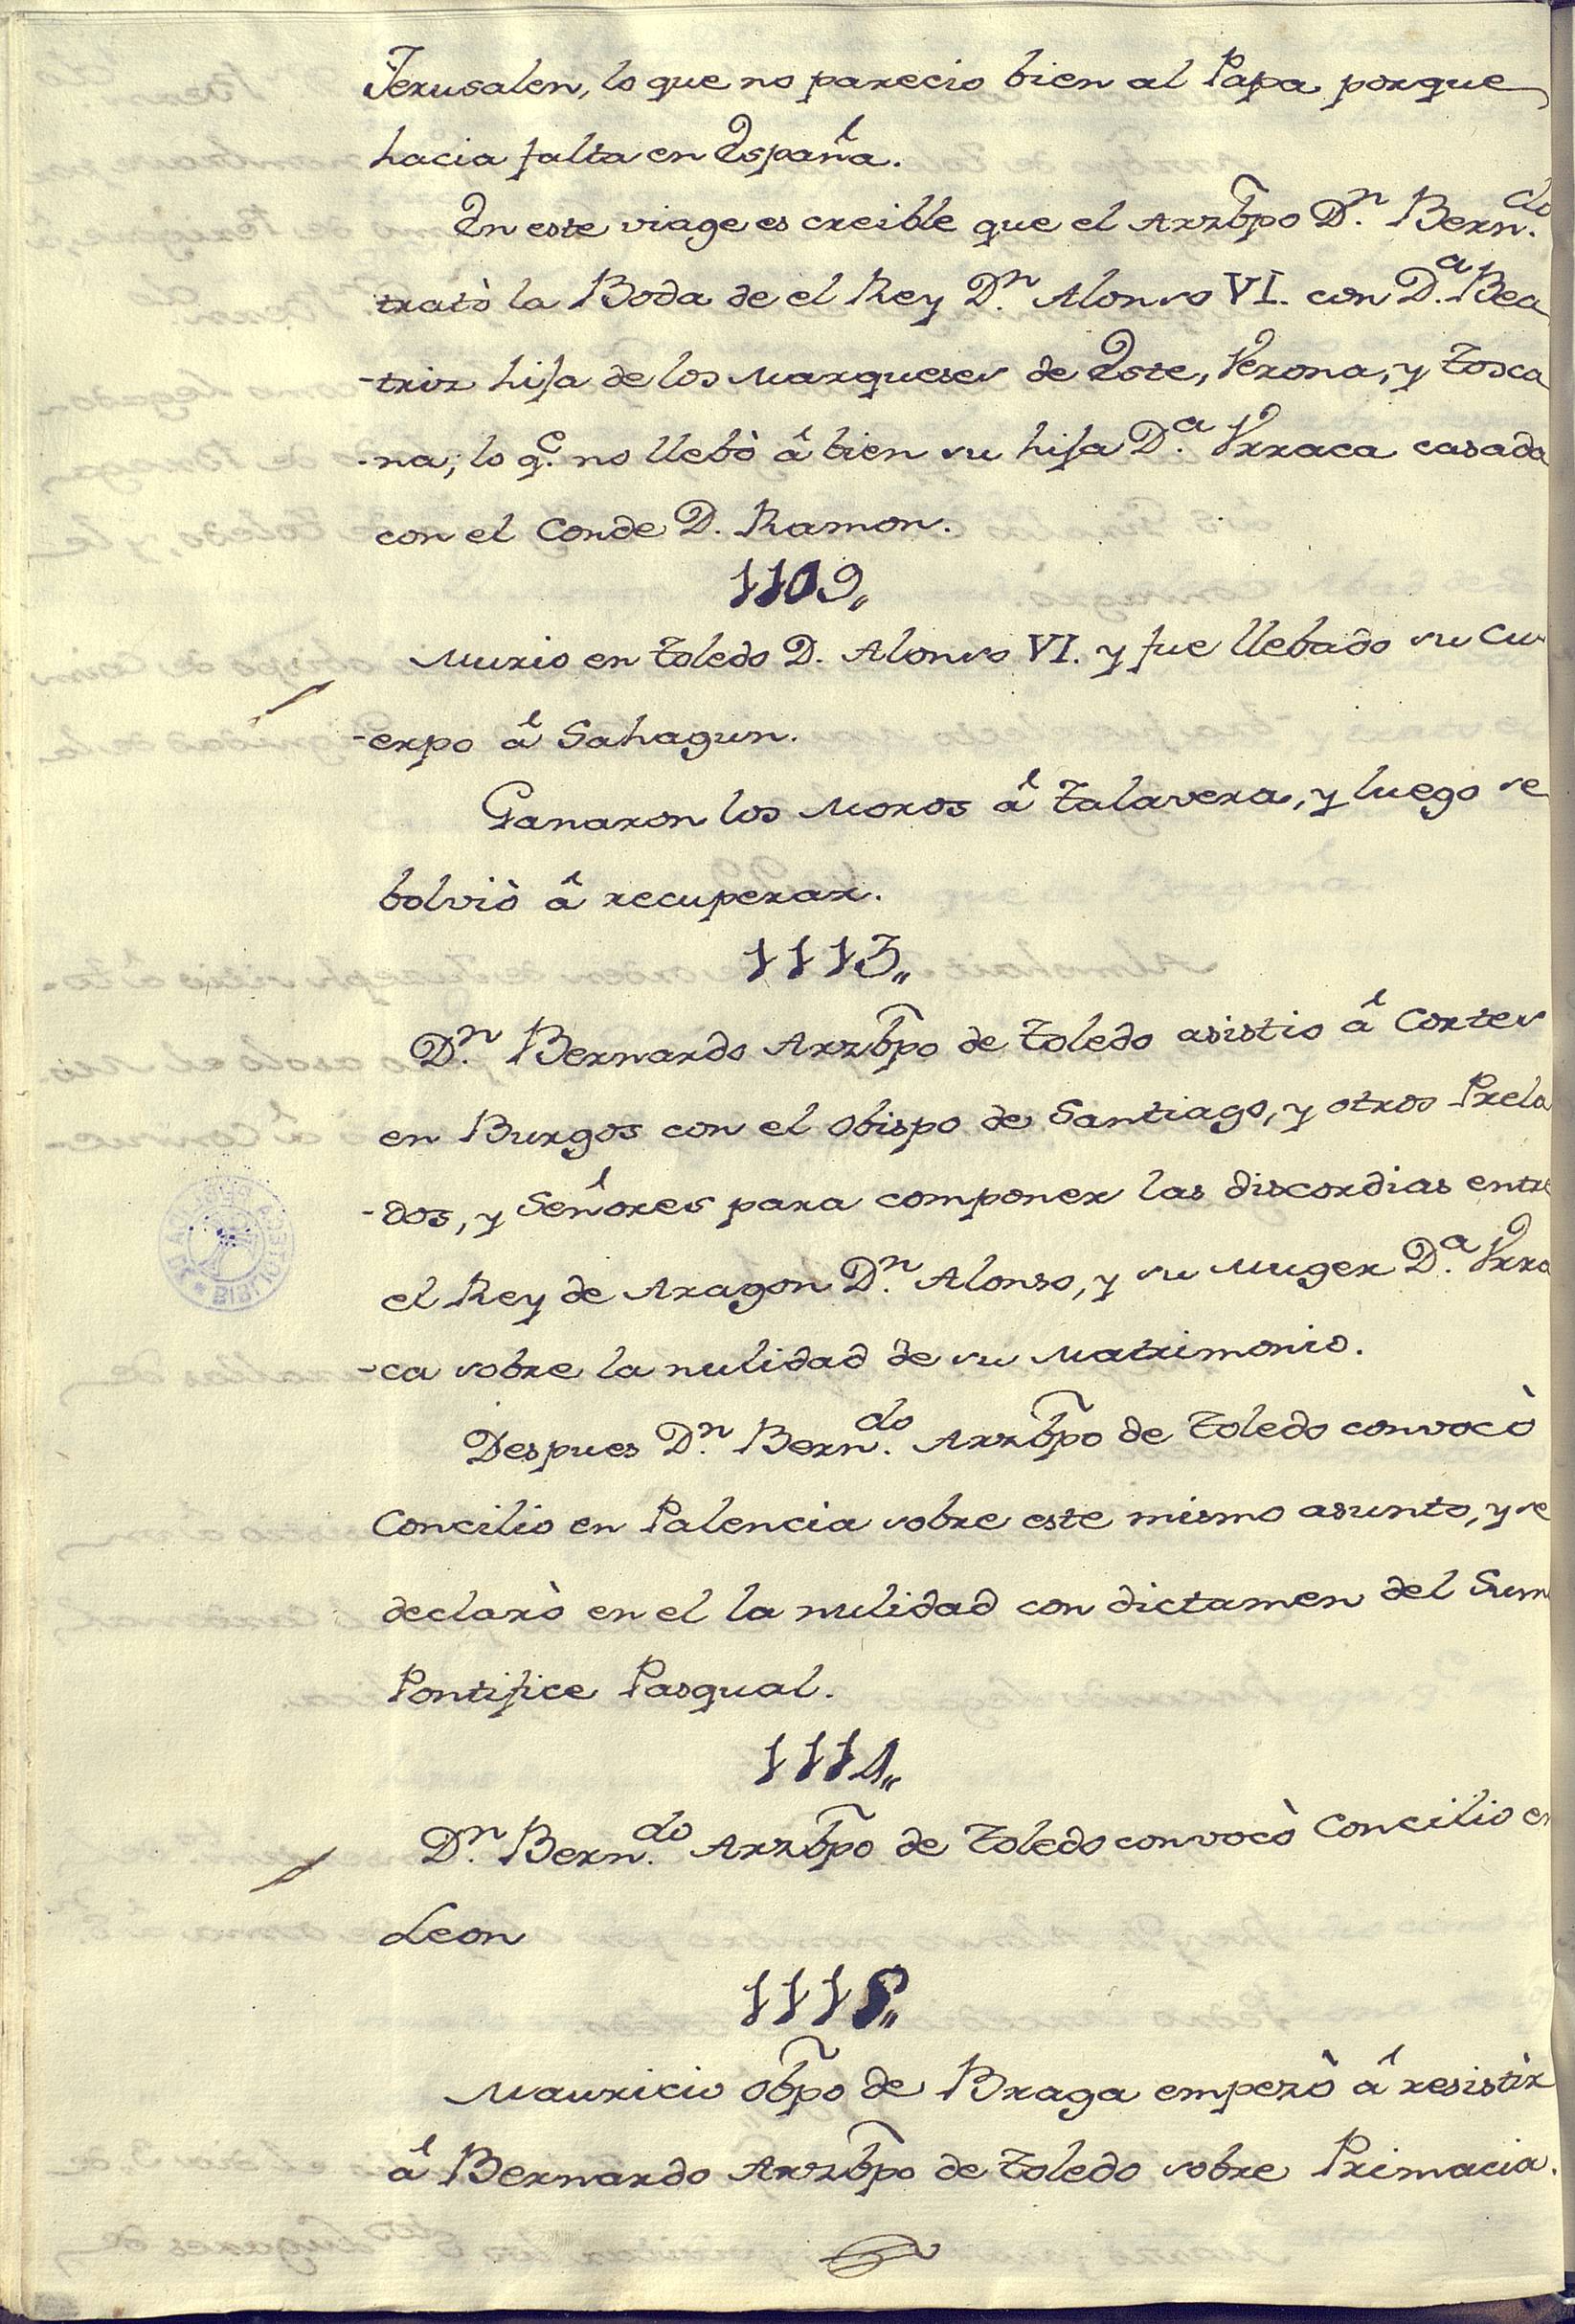 Jerusalen, lo que no parecio bien al Papa porque
hacia falta en España.
En este viage es creible que el Arzbp̃o D.n Bern.do
tratò la Boda de el Rey D.n Alonso VI. con D.a Bea
-triz hija de los Marqueses de Este, Verona, y Tosca
-na; lo q.e no llebò â bien su hija D.a Vrraca casada
con el Conde D. Ramon.
1109,,
Murio en Toledo D. Alonso VI. y fue llebado su Cu-
-erpo â Sahagun.
Ganaron los Moros â Talavera, y luego se
bolviò â recuperar.
1113,,
D.n Bernardo Arzbp̃o de Toledo asistio â Cortes
en Burgos con el Obispo de Santiago, y otros Prela
-dos, y Señores para componer las discordias entre
el Rey de Aragon D.n Alonso, y su Muger D.a Vrra
-ca sobre la nulidad de su Matrimonio.
Despues D.n Bern.do Arzbp̃o de Toledo convocò
Concilio en Palencia sobre este mismo asunto, y se
declarò en el la nulidad con dictamen del Sum
Pontifice Pasqual.
1114,,
D.n Bern.do Arzbp̃o de Toledo convocò Concilio en
Leon
111,,
Mauricio Obp̃o de Braga empezò â resistir
â Bernardo Arzbp̃o de Toledo sobre Primacia.
BIBLIOTECA